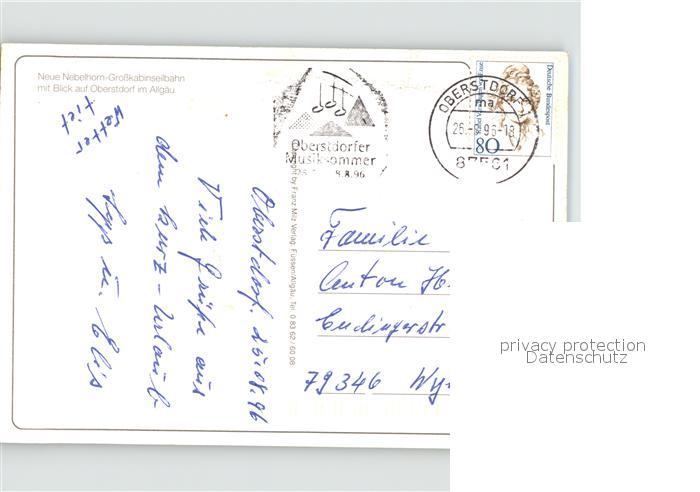 Neue Nebelhorn-Großkabinseilbahn
mit Blick auf Oberstdorf im Allgäu.
Wetter
tief
Oberstdorf, 25.08.96
Viele Grüße aus
dem Kurz-Urlaub
Sepp u. Elis
by Franz Milz Verlag, Füssen/Allgäu, Tel. 0 83 62 / 60 08
Oberstdorfer
Musiksommer
8.8.96
OBERSTDORF
ma
26.-8.96-18
87561
Deutsche Bundespost
80
Familie
Anton H
Endingerstr
79346 Wy
privacy protection
Datenschutz